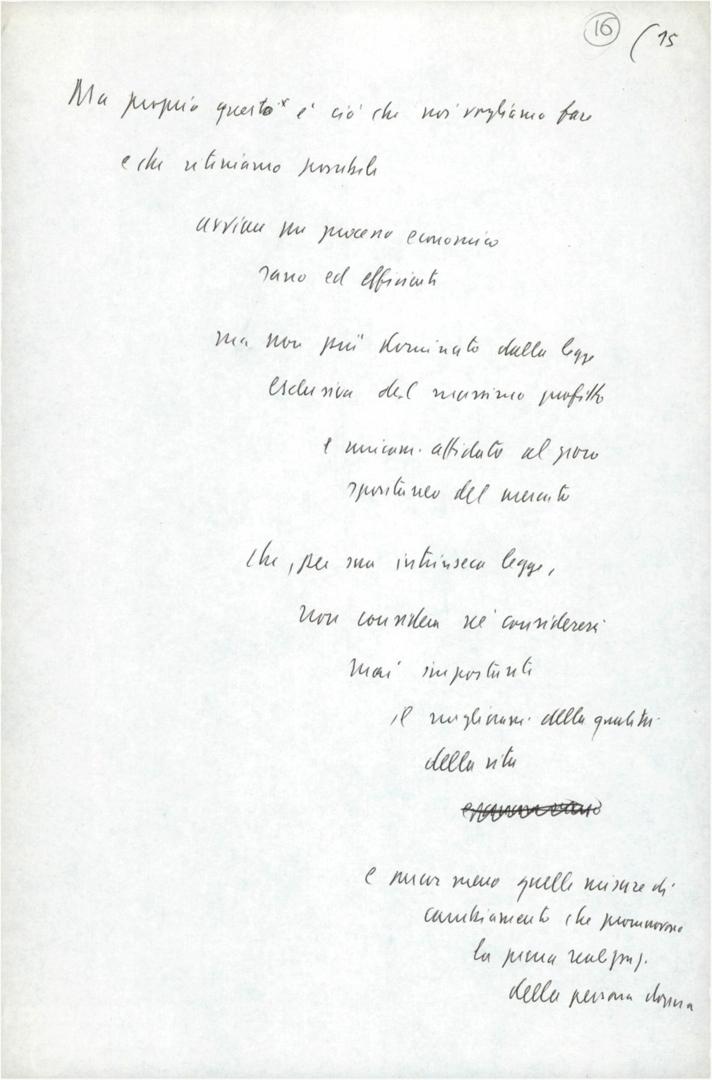 16 (15
Ma proprio questo x è ciò che noi vogliamo fare
e che riteniamo possibile
avviare un processo economico
sano ed efficiente
ma non più dominato dalla legge
esclusiva del massimo profitto
e unicam. affidato al gioco
spontaneo del mercato
che, per sua intrinseca legge,
non considera nè considererà
mai importante
il miglioram. della qualità
della vita
e ancor meno quelle misure di
cambiamento che promuovono
la piena realizzaz.
della persona donna